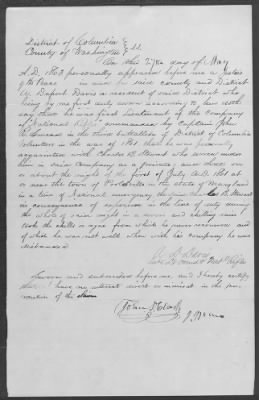 District of Columbia }
County of Washington } SS.
On this Fifth day of May
A.D. 1868 personally appeared before me a Justice
of the Peace in and for said County and District
A. Dupont Davis a resident of said District who
being by me first duly sworn according to law doth
say that he was first Lieutenant of the Company
of National Rifles commanded by Captain John
R. in the third battalion of District of Columbia
Volunteers in the war of 1861 that he was personally
acquainted with Charles R. who served under
him in said Company as a private; and that on
or about the night of the first of July A.D. 1861 at
or near the town of in the State of Maryland
in a time of National emergency the said Chas R.
in consequence of exposure in the line of duty during
the whole of said night in a severe and chilling rain
took the chills or ague from which he never recovered and
of which he was not well when with his Company he was
Late 1st Lieut Nat Rifles
Sworn and subscribed before me, and I hereby certify
that I have no interest direct or indirect in the pro-
secution of the claim
John